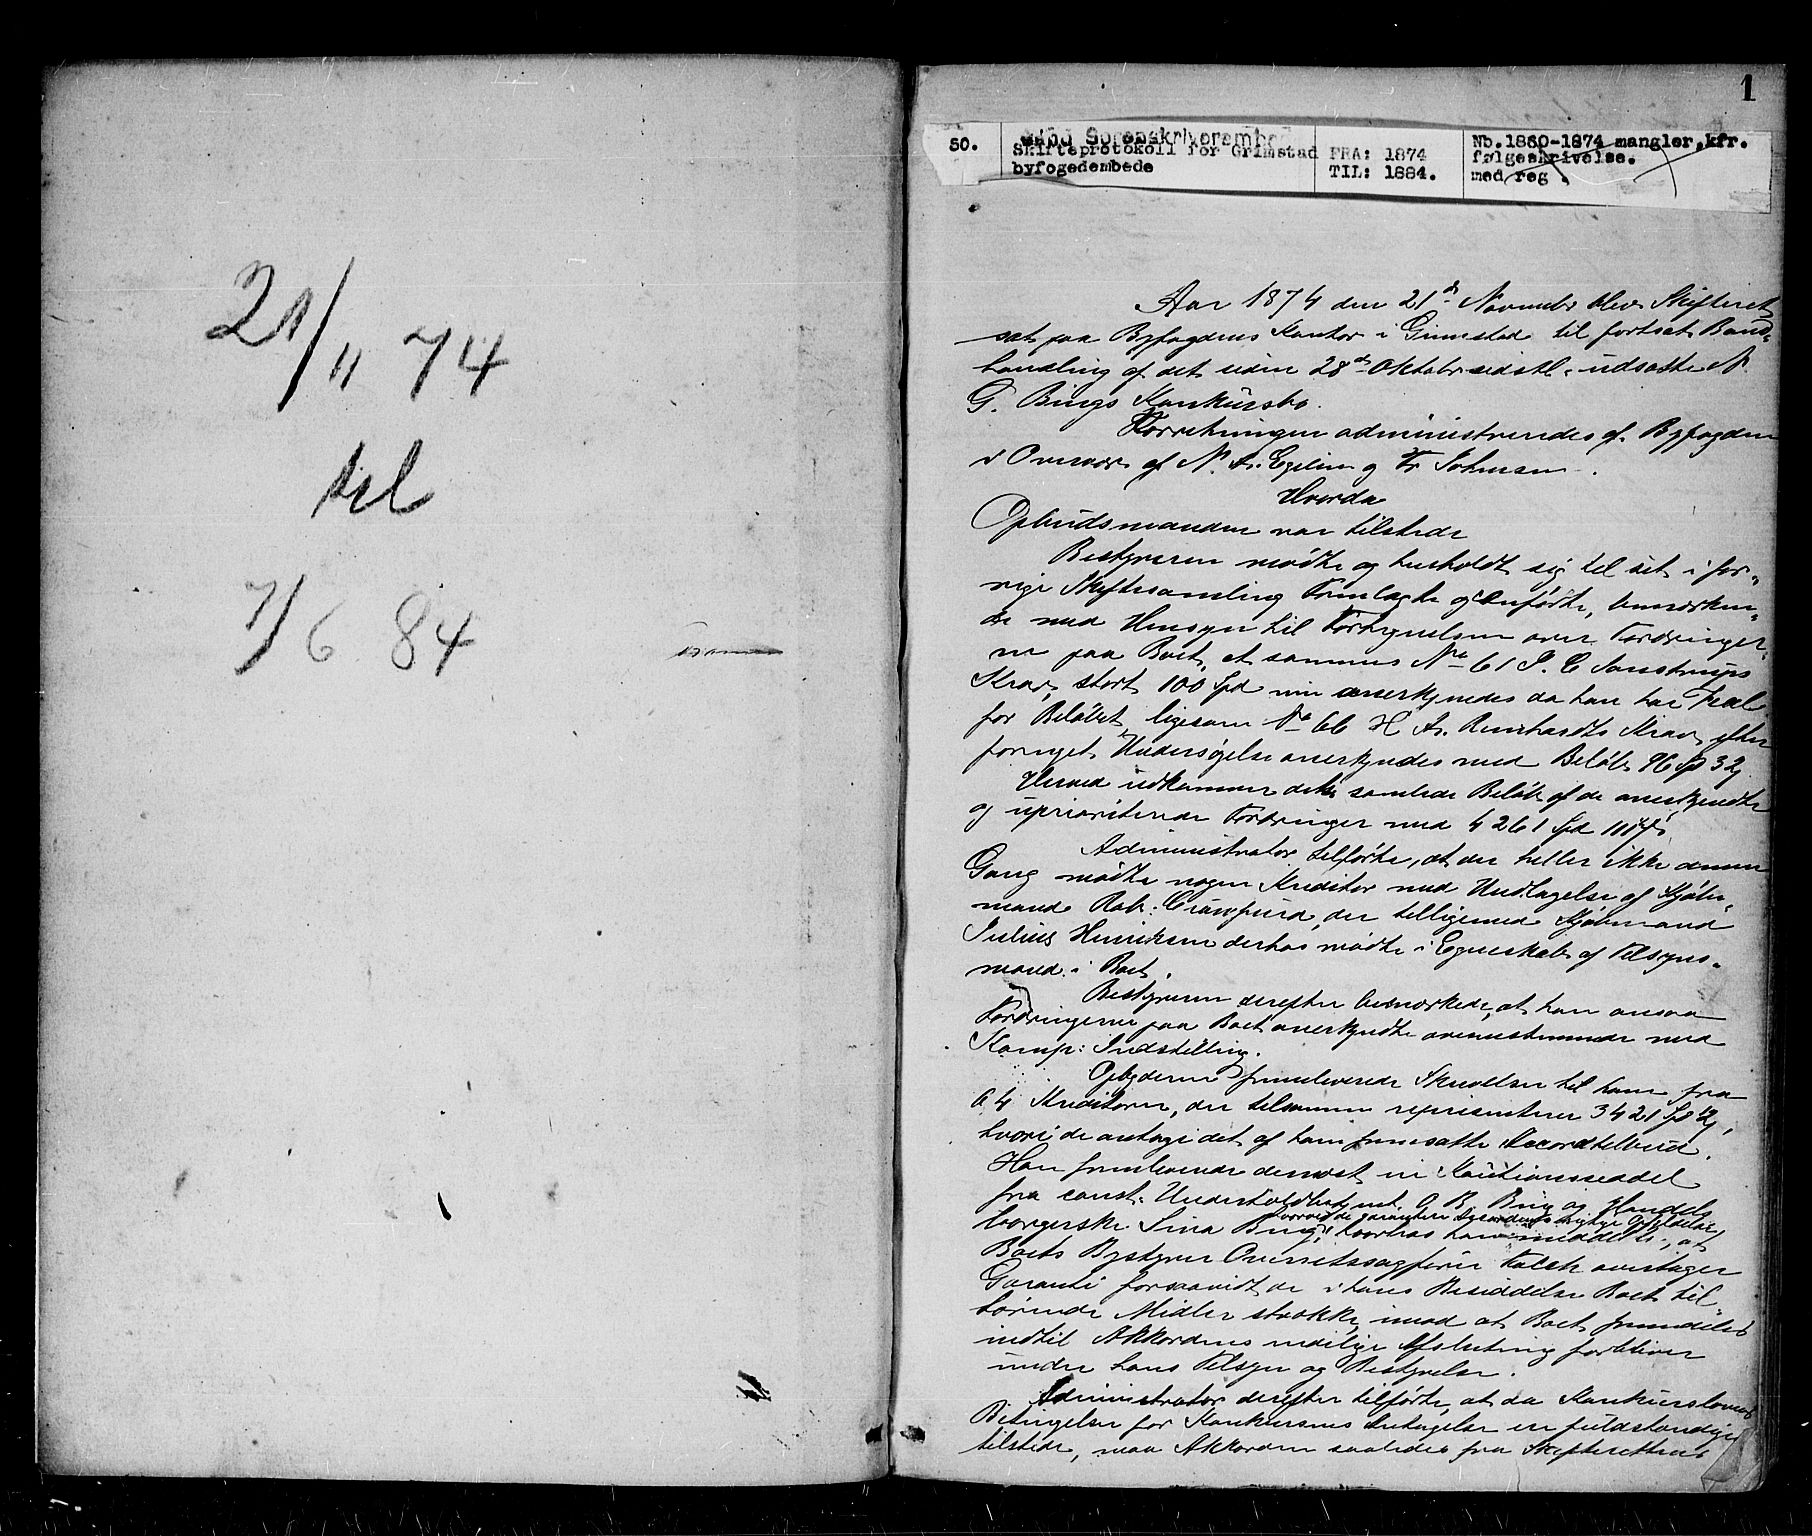 21/11 74
til
7/6 84
1
50.
Sand Sorenskriverembe
Skifteprotokoll for Grimstad
byfogedembede
FRA: 1874
TIL: 1884.
Nb. 1860-1874 mangler, kfr.
følgeskrivelse.
med reg.
Aar 1874 den 21de Novembr blev Skifteret
sat paa Byfogdens Kontor i Grimstad til fortsat Bond-
handling af det siden 28de Oktobr sidstl. udsatte N.
G. Bings Konkursbo.
Forretningen administreredes af Byfogden
i Overvær af N. A. Egelien og Fr Johnsen.
Hvorda
Opbudsmanden var tilstede
Bestyreren mødte og henholdt sig til det i for-
rige Skiftesamling Fremlagte og Anførte, bemærken-
de med Hensyn til Fortegnelsen over Fordringer-
ne paa Boet, at sammes No 61 J. C. Krav, stort 100 Spd nu anerkjendes da han har
for Beløbet ligesom No 66 H A. Reinhardts Krav efter
fornyet Undersøgelse anerkjendes med Beløb 96 Spd 32
Herved udkommer det samlede Beløb af de anerkjendte
og uprioriterede Fordringer med 4261 Spd
Administrator tilførte, at der heller ikke denne
Gang mødte nogen Kreditor med Undtagelse af Kjøb-
mand Rob: Crawfurd, der tilligemed Kjøbmand
Julius Henriksen derhos mødte i Egenskab af Tilsyns-
mænd i Boet.
Bestyreren derefter bemærkede, at han ansaa
Fordringerne paa Boet anerkjendte overensstemmende med
Komp: Indstilling.
Opbyderen fremleverede Skrivelser til ham fra
64 Kreditorer, der tilsammen repræsenterer 3421 Spd
hvori de antage det af ham fremsatte Accordtilbud.
Han fremleverede dernæst en Kautionsseddel
fra const: Underfoldbetjent O. B. Bing og Handels
borgerske Lina Bing, hvorved de garanterer Accordens rigtige Opfyldelse
hvorhos han meddelte, at
Boets Bestyrer Overretssagfører Falch overtager
Garanti forsaavidt de i hans Besiddelse Boet til-
hørende Midler strække, imod at Boet fremdeles
indtil Akkordens endelige Afslutning forbliver
under hans Tilsyn og Bestyrelse.
Administrator derefter tilførte, at da Konkurslovens
Betingelser for Konkursens Antagelse er fuldstændige
tilstede, maa Akkorden saaledes fra Skifterettens